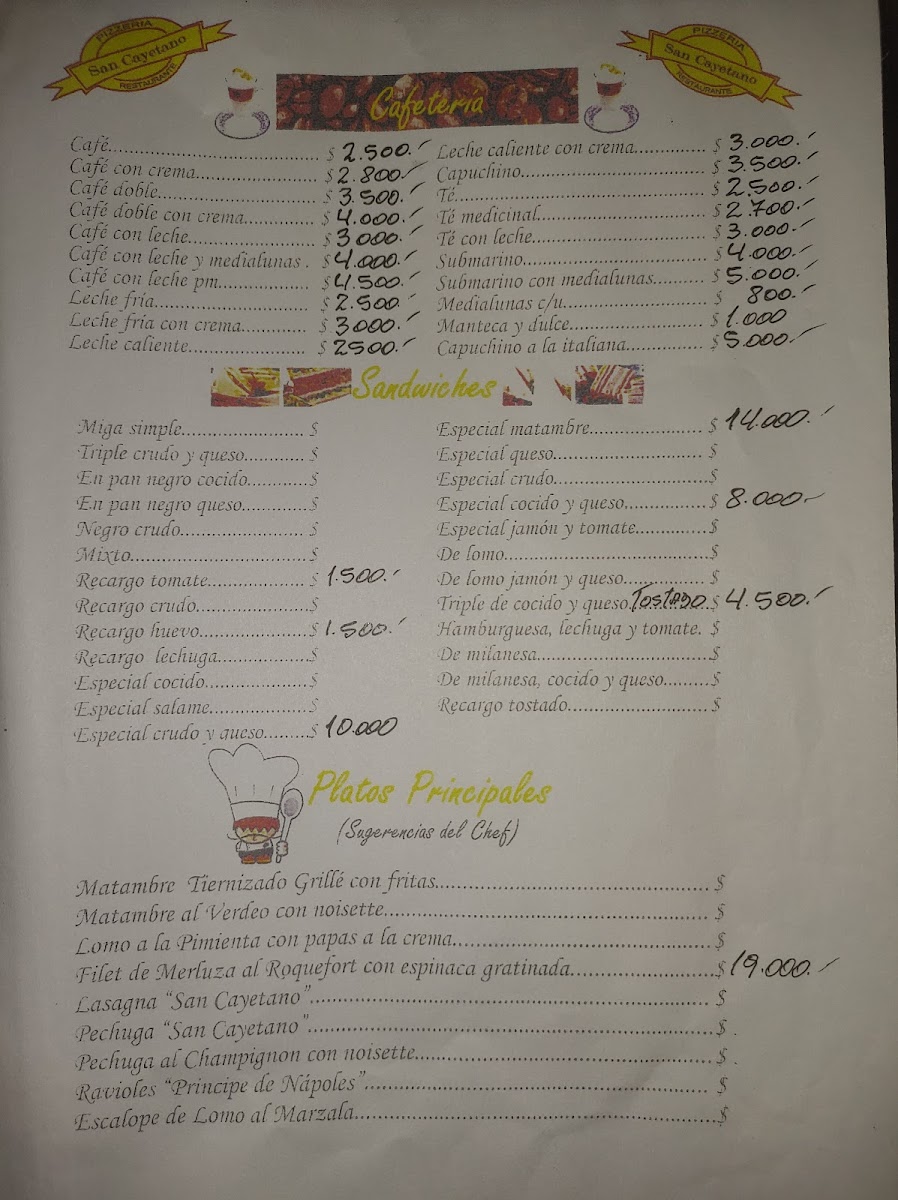 PIZZERIA
San Cayetano
RESTAURANTE
PIZZERIA
San Cayetano
RESTAURANTE
Cafetería
Café.......... $ 2.500.-
Café con crema.......... $ 2.800.-
Café doble.......... $ 3.500.-
Café doble con crema.......... $ 4.000.-
Café con leche.......... $ 3000.-
Café con leche y medialunas . $ 4.000.-
Café con leche pm.......... $ 4.500.-
Leche fria.......... $ 2.500.-
Leche fria con crema.......... $ 3000.-
Leche caliente.......... $ 2500.-
Leche caliente con crema.......... $ 3.000.-
Capuchino.......... $ 3.500.-
Té.......... $ 2.500.-
Té medicinal.......... $ 2.700.-
Té con leche.......... $ 3.000.-
Submarino.......... $ 4.000.-
Submarino con medialunas.......... $ 5.000.-
Medialunas c/u.......... $ 800.-
Manteca y dulce.......... $ 1.000
Capuchino a la italiana.......... $ 5.000.-
Sandwiches
Miga simple.......... $
Triple crudo y queso.......... $
En pan negro cocido.......... $
En pan negro queso.......... $
Negro crudo.......... $
Mixto.......... $
Recargo tomate.......... $ 1.500.-
Recargo crudo.......... $
Recargo huevo.......... $ 1.500.-
Recargo lechuga.......... $
Especial cocido.......... $
Especial salame.......... $
Especial crudo y queso.......... $ 10.000
Especial matambre.......... $ 14.000.-
Especial queso.......... $
Especial crudo.......... $
Especial cocido y queso.......... $ 8.000-
Especial jamón y tomate.......... $
De lomo.......... $
De lomo jamón y queso.......... $
Triple de cocido y queso. Tostado. $ 4.500.-
Hamburguesa, lechuga y tomate. $
De milanesa.......... $
De milanesa, cocido y queso.......... $
Recargo tostado.......... $
Platos Principales
(Sugerencias del Chef)
Matambre Tiernizado Grillé con fritas.......... $
Matambre al Verdeo con noisette.......... $
Lomo a la Pimienta con papas a la crema.......... $
Filet de Merluza al Roquefort con espinaca gratinada.......... $ 19.000.-
Lasagna “San Cayetano”.......... $
Pechuga “San Cayetano”.......... $ .
Pechuga al Champignon con noisette.......... $ .
Ravioles “Principe de Nápoles”.......... $
Escalope de Lomo al Marzala.......... $